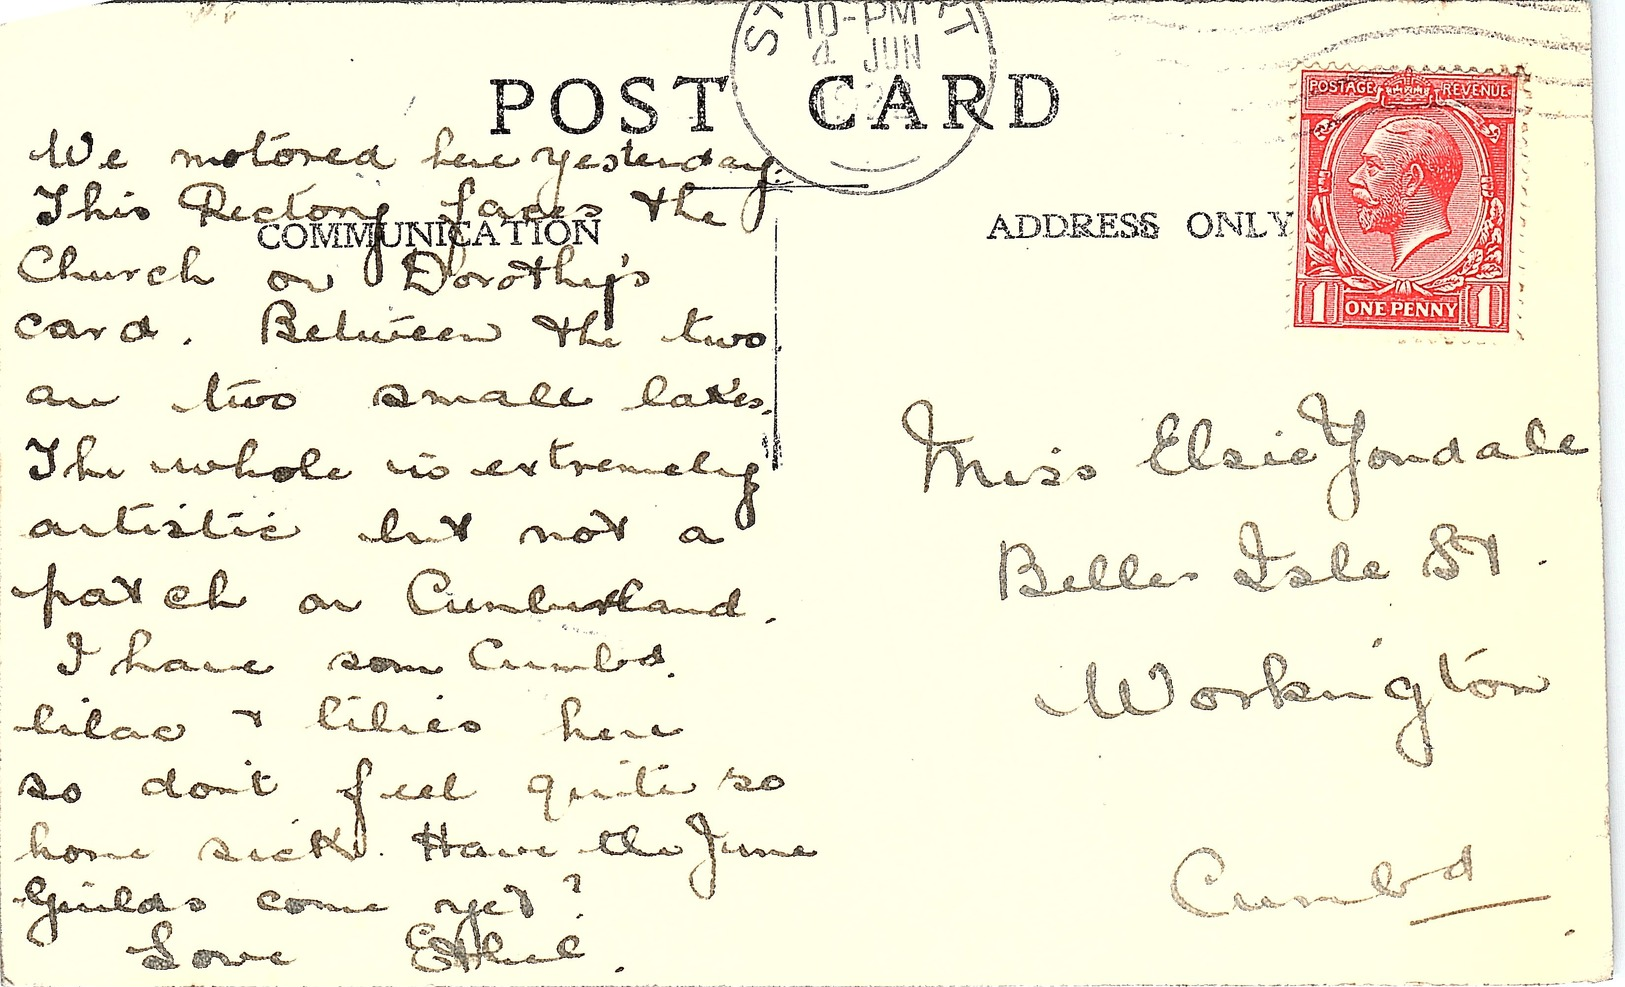 10-PM
4 JUN
POST CARD
POSTAGE REVENUE
1 ONE PENNY 1
COMMUNICATION
ADDRESS ONLY
We motored here yesterday.
This Rectory faces the
Church on Dorothy's
card. Between the two
are two small lakes.
The whole is extremely
artistic but not a
patch on Cumberland.
I have some Cumbd.
lilac & lilies here
so don't feel quite so
home sick. Have the June
Guilds come yet?
Love Ethel.
Miss Elsie Yondale
Belle Isle St.
Workington
Cumbd.